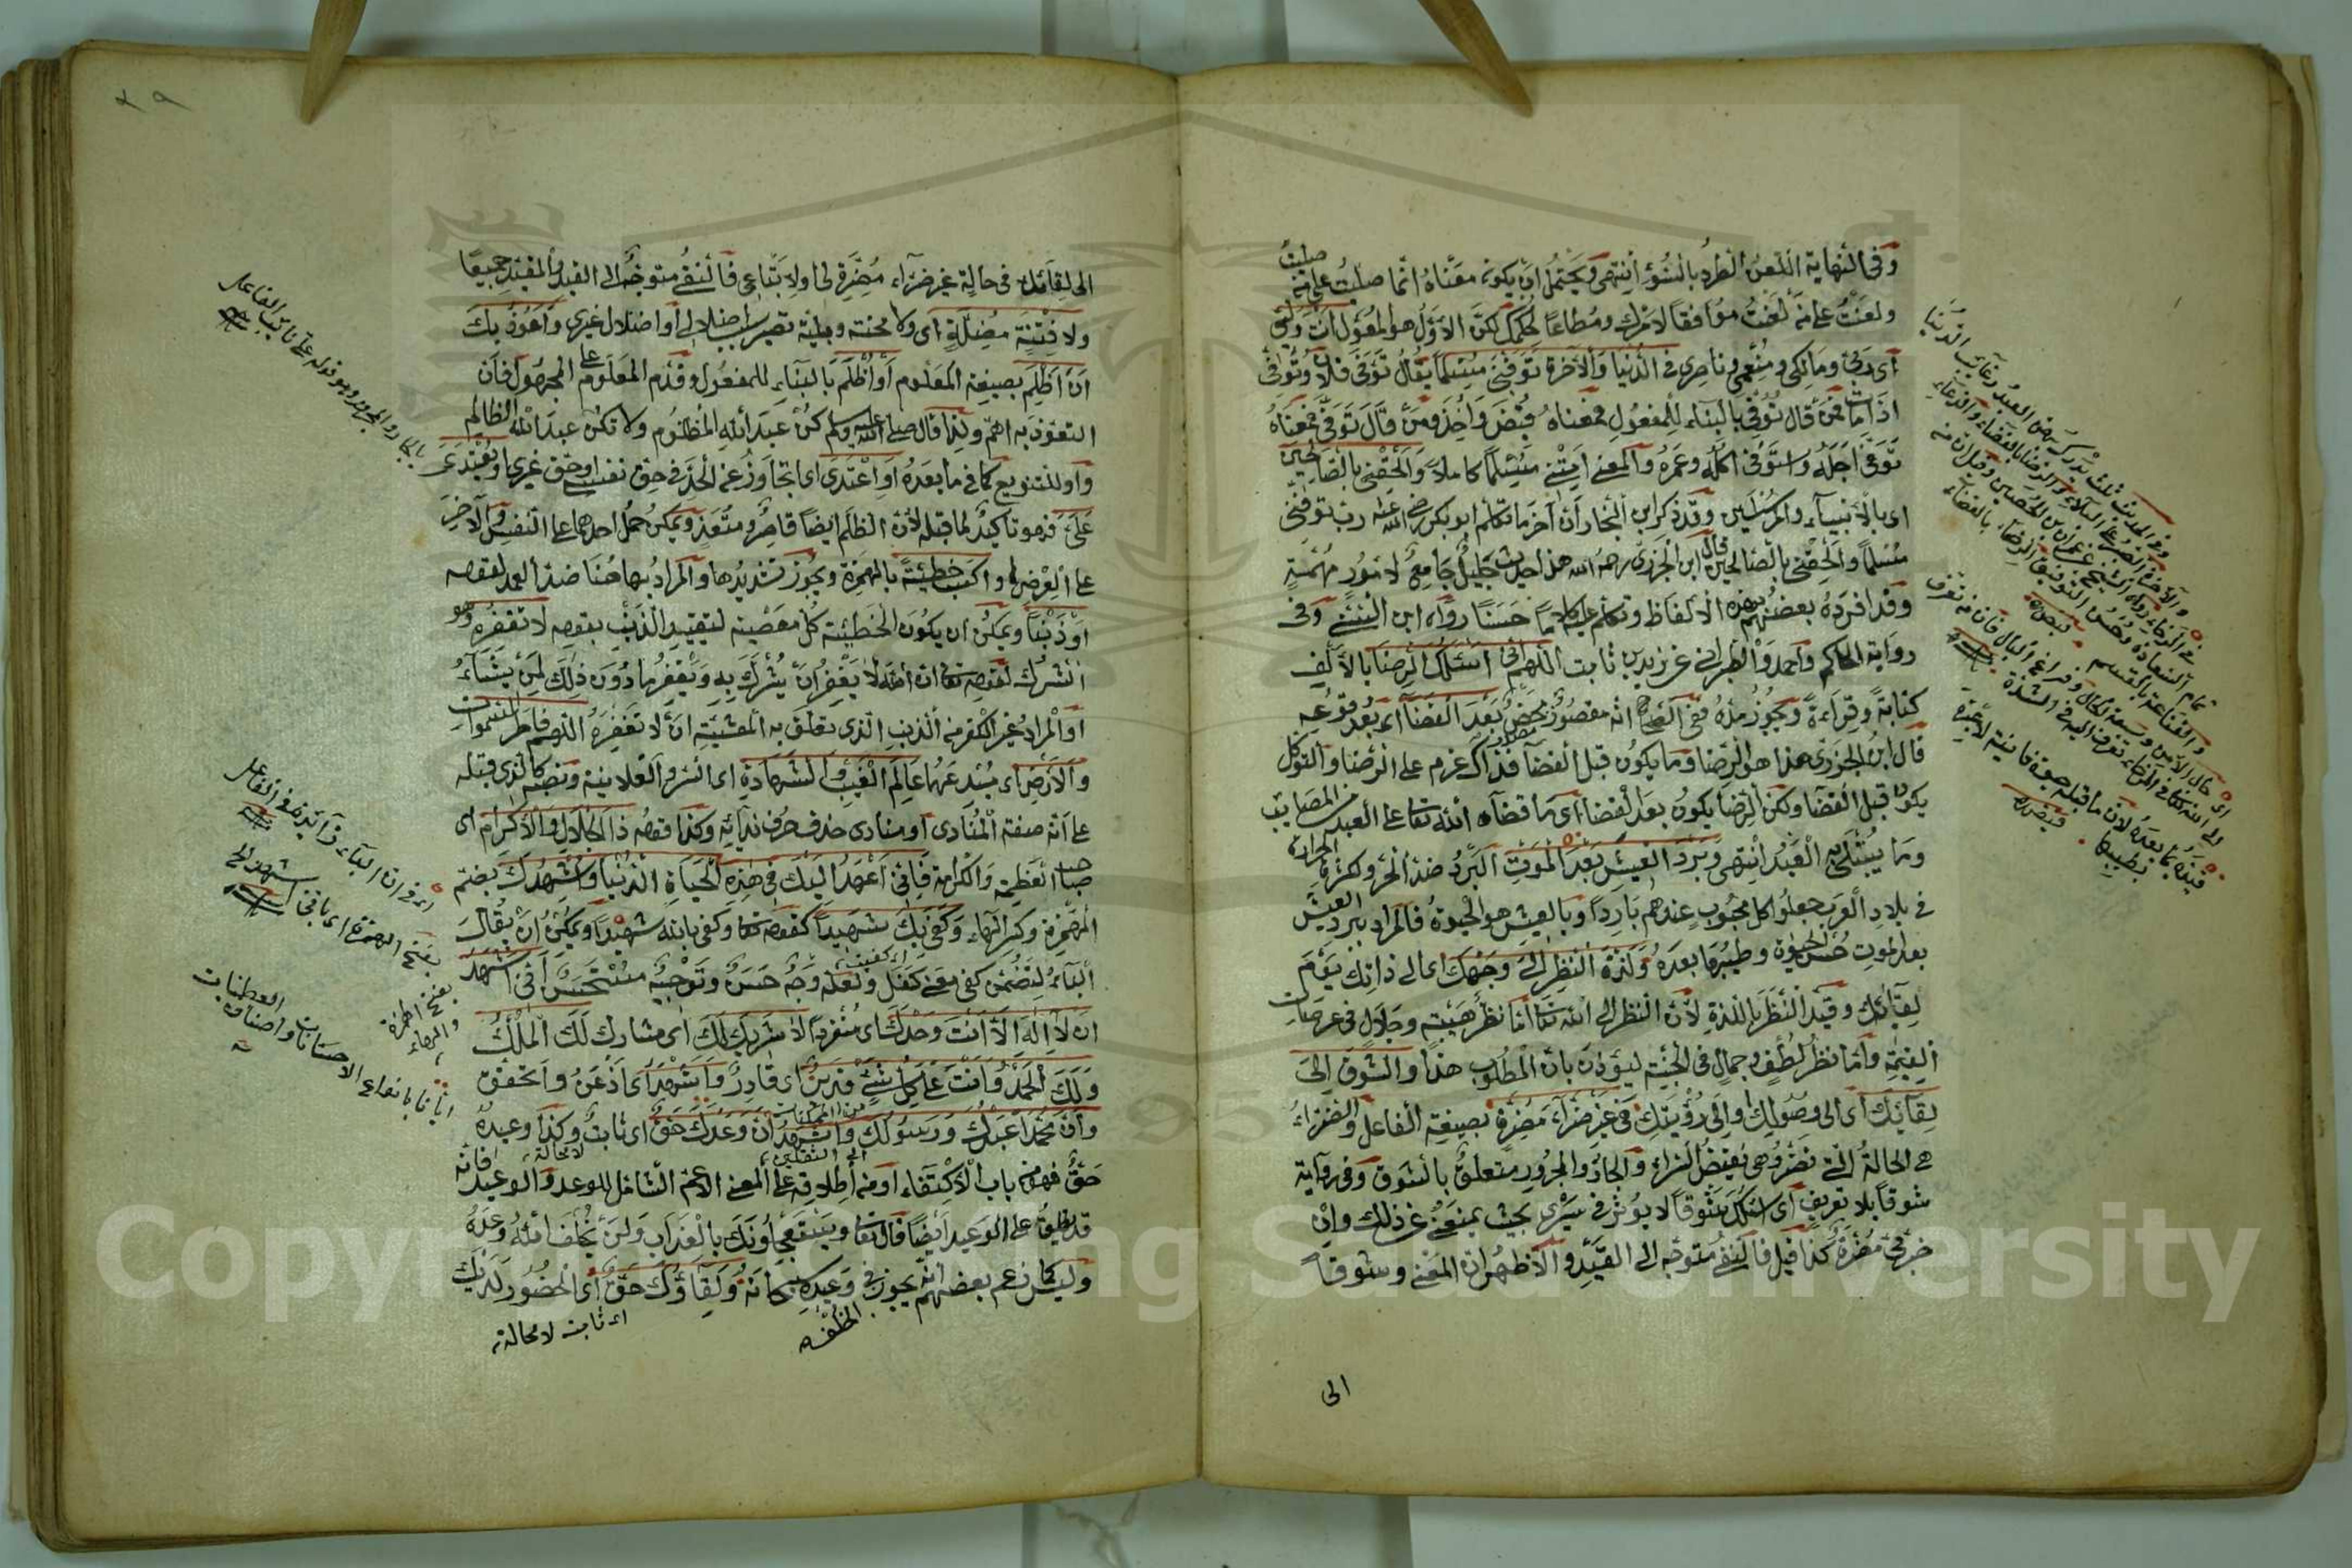 وفى النهاية اللعن الطرد بالسوء انتهى ويحتمل ان يكون معناه انما صليت على من صليت
ولعنت على من لعنت موافقا لامرك ومطاعا لحكمك لكن الاول هو المعول انت وليى
اى ربى ومالكى ومنعمى وناصرى فى الدنيا والآخرة توفنى مسلما يقال توفى فلان وتوفى
اذا مات فمن قال توفى بالبناء للمفعول فمعناه قبض واخذ ومن قال توفى فمعناه
توفى اجله واستوفى اكله وعمره والمعنى امتنى مسلما كاملا والحقنى بالصالحين
اى بالانبياء والمرسلين وقد ذكر ابن النجار ان آخر ما تكلم ابو بكر رضى الله عنه رب توفنى
مسلما والحقنى بالصالحين قال ابن الجزرى رحمه الله هذا حديث جليل جامع لامور مهمة
وقد افرده بعضهم بهذه الالفاظ وتكلم عليه كلاما حسنا رواه ابن السنى وفى
رواية الحاكم واحمد والطبرانى عن زيد بن ثابت اللهم انى اسئلك الرضا بالالف
كتابة وقراءة ويجوز مده ففى الصحاح انه مقصور محض بعد القضا اى بعد وقوعه
قال ابن الجزرى هذا هو الرضا وما يكون قبل القضا فذاك عزم على الرضا والتوكل
يكون قبل القضا ولكن الرضا يكون بعد القضا اى ما قضاه الله تعا على العبد من المصايب
وما يبتلى به العبد انتهى وبرد العيش بعد الموت البرد ضد الحر ولكثرة الحرارة
فى بلاد العرب جعلوا كل محبوب عندهم باردا وبالعيش هو الحيوة فالمراد ببرد العيش
بعد الموت حسن الحيوة وطيبها بعده ولذة النظر الى وجهك اى الى ذاتك يوم
لقائك وقيد النظر باللذة لان النظر الى الله تعا اما نظر هيبة وجلال فى عرصات
القيمة واما نظر لطف وجمال فى الجنة ليؤذن بان المطلوب هذا والشوق الى
لقائك اى الى وصولك والى رؤيتك فى غير ضراء مضرة بصيغة الفاعل والضراء
هى الحالة التى تضر وهى نقيض السراء والجار والمجرور متعلق بالشوق وفى رواية
شوقا بلا تعريف اى اسئلك شوقا لا يؤثر فى سيرى بحيث يمنعنى عن ذلك وان
ضرنى مضرة كذا قيل فالنفى متوجه الى القيد والاظهر ان المعنى وشوقا
الى
وفى الحديث ثلث يدرك بهن العبد رغايب الدنيا
والآخرة الصبر على البلاء والرضا بالقضاء والدعاء
الى لقائك فى حالة غير ضراء مضرة لى اولاتباعى فالنفى متوجه الى القيد والمقيد جميعا
ولا فتنة مضلة اى ولا محنة وبلية تصير سبب ضلالى او اضلال غيرى واعوذ بك
ان اظلم بصيغة المعلوم او اظلم بالبناء للمفعول وقدم المعلوم على المجهول فان
التعوذ به اهم ولذا قال صلى الله عليه وسلم كن عبد الله المظلوم ولا تكن عبد الله الظالم
واو للتنويع كما فى ما بعده او اعتدى اى اتجاوز عن الحد فى حق نفسى او حق غيرى او يعتدى
على فهو تاكيد لما قبله لان الظلم ايضا قاصر ومتعد ويمكن حمل احدهما على النفس والآخر
على العرض او اكسب خطيئة بالهمزة ويجوز تشديدها والمراد بها هنا ضد العمد لقوله
او ذنبا ويمكن ان يكون الخطيئة كل معصية لتقييد الذنب بقوله لا تغفره وهو
الشرك لقوله تعا ان الله لا يغفر ان يشرك به ويغفر ما دون ذلك لمن يشاء
او المراد غير الكفر من الذنب الذى تعلق به المشية ان لا تغفره اللهم فاطر السموات
والارض اى مبدعهما عالم الغيب والشهادة اى السر والعلانية ونصبه كالذى قبله
على انه صفة المنادى او منادى حذف حرف ندائه وكذا قوله ذا الجلال والاكرام اى
صاحب العظمة والكرامة فانى اعهد اليك فى هذه الحياة الدنيا واشهدك بضم
الهمزة وكسر الهاء وكفى بك شهيدا كقوله تعا وكفى بالله شهيدا ويمكن ان يقال
الباء لتضمن كفى معنى كفل ولعله وجه حسن وتوجيه مستحسن انى اشهد
ان لا اله الا انت وحدك اى منفردا لا شريك لك اى مشارك لك الملك
ولك الحمد وانت على كل شئ قدير اى قادر واشهد اى اذعن واتحقق
وان محمدا عبدك ورسولك واشهد ان وعدك حق اى ثابت وكذا وعيده
حق فهو من باب الاكتفاء او من اطلاقه على المعنى الاعم الشامل للوعد والوعيد فانه
قد يطلق على الوعيد ايضا قال تعا ويستعجلونك بالعذاب ولن يخلف الله وعده
وليس كما زعم بعضهم انه يجوز فى وعيده سبحانه ولقاؤك حق اى الحضور لديك
اى ثابت لا محالة
بالجار والمجرور وهو قوله على نائب الفاعل
اى فى ان الباء زائدة فى الفاعل
بفتح الهمزة اى بانى اشهد الخ
بفتح الهمزة والهاء